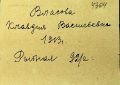 4364
Власова
Клавдия Васильевна
1913.
Рыбная 92/а.